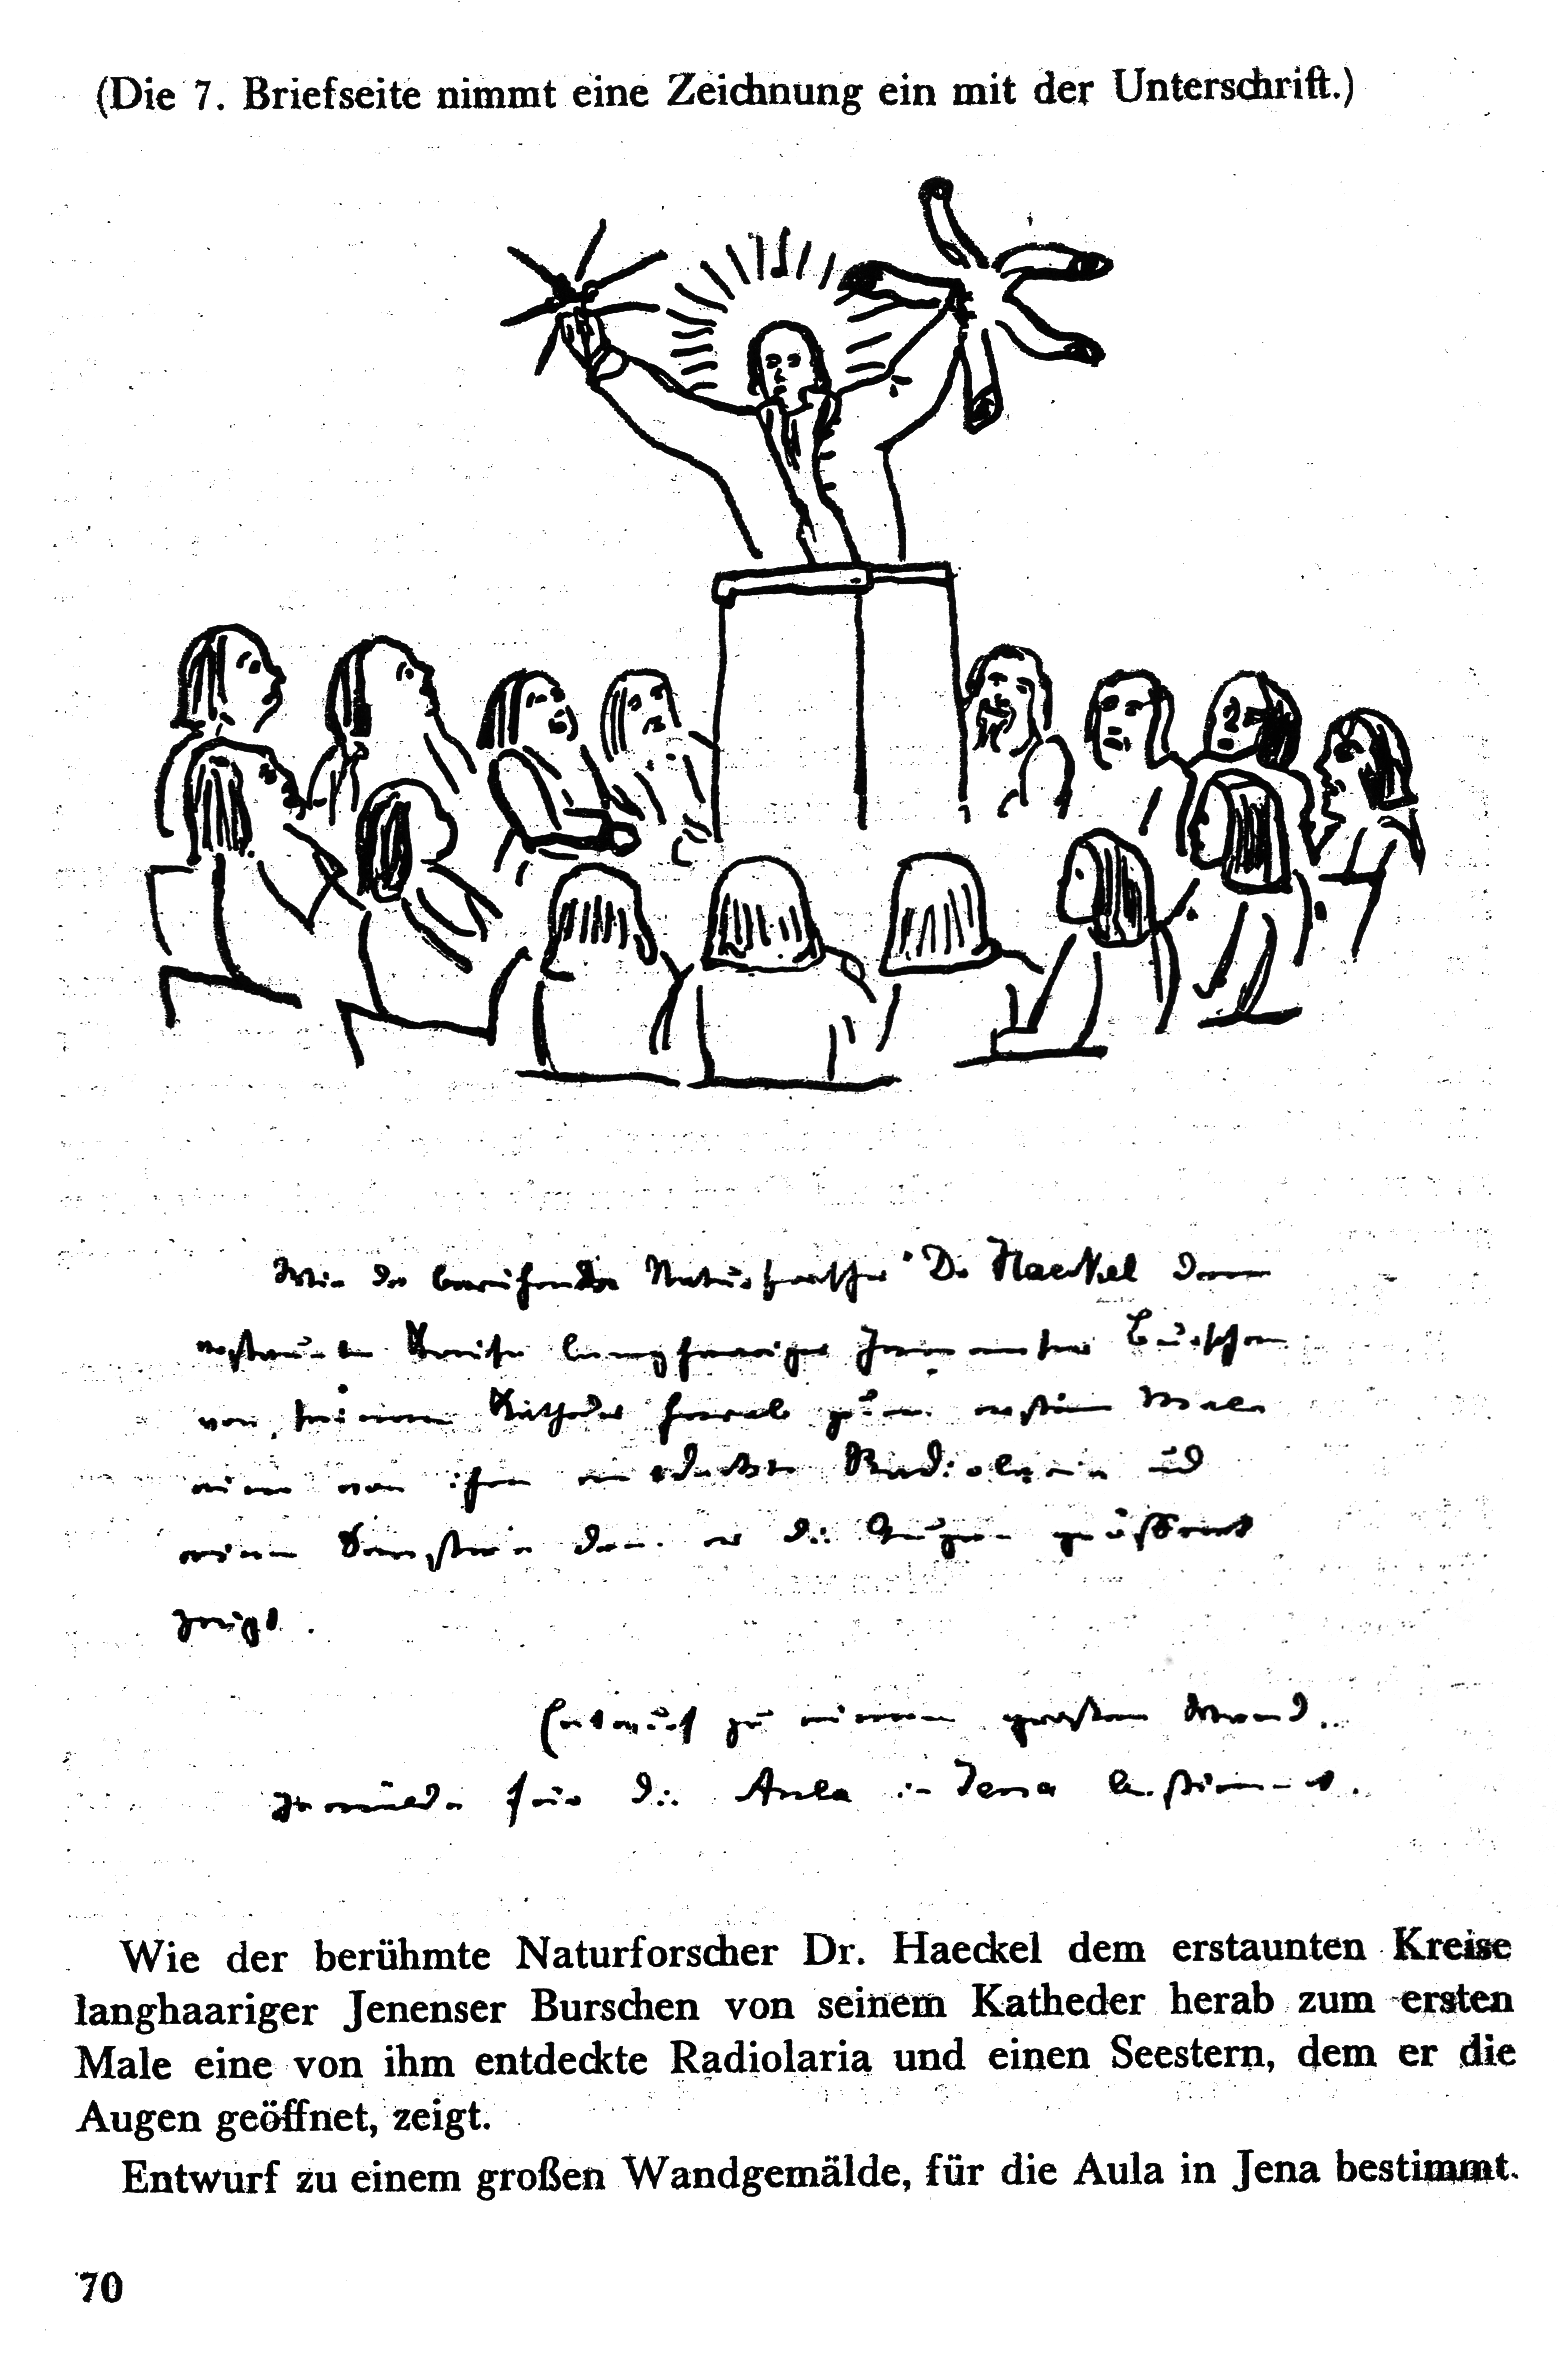 (Die 7. Briefseite nimmt eine Zeichnung ein mit der Unterschrift.)
Wie der beruhmte Naturforscher Dr Haeckel dem
erstaunten Kreise langhaariger Jenenser Burschen
von seinem Katheder herab zum ersten Male
eine von ihm entdeckte Radiolaria und
einen Seestern dem er die Augen geöffnet
zeigt.
Entwurf zu einem grossen Wand-
gemälde für die Aula in Jena bestimmt.
Wie der berühmte Naturforscher Dr. Haeckel dem erstaunten Kreise
langhaariger Jenenser Burschen von seinem Katheder herab zum ersten
Male eine von ihm entdeckte Radiolaria und einen Seestern, dem er die
Augen geöffnet, zeigt.
Entwurf zu einem großen Wandgemälde, für die Aula in Jena bestimmt.
70